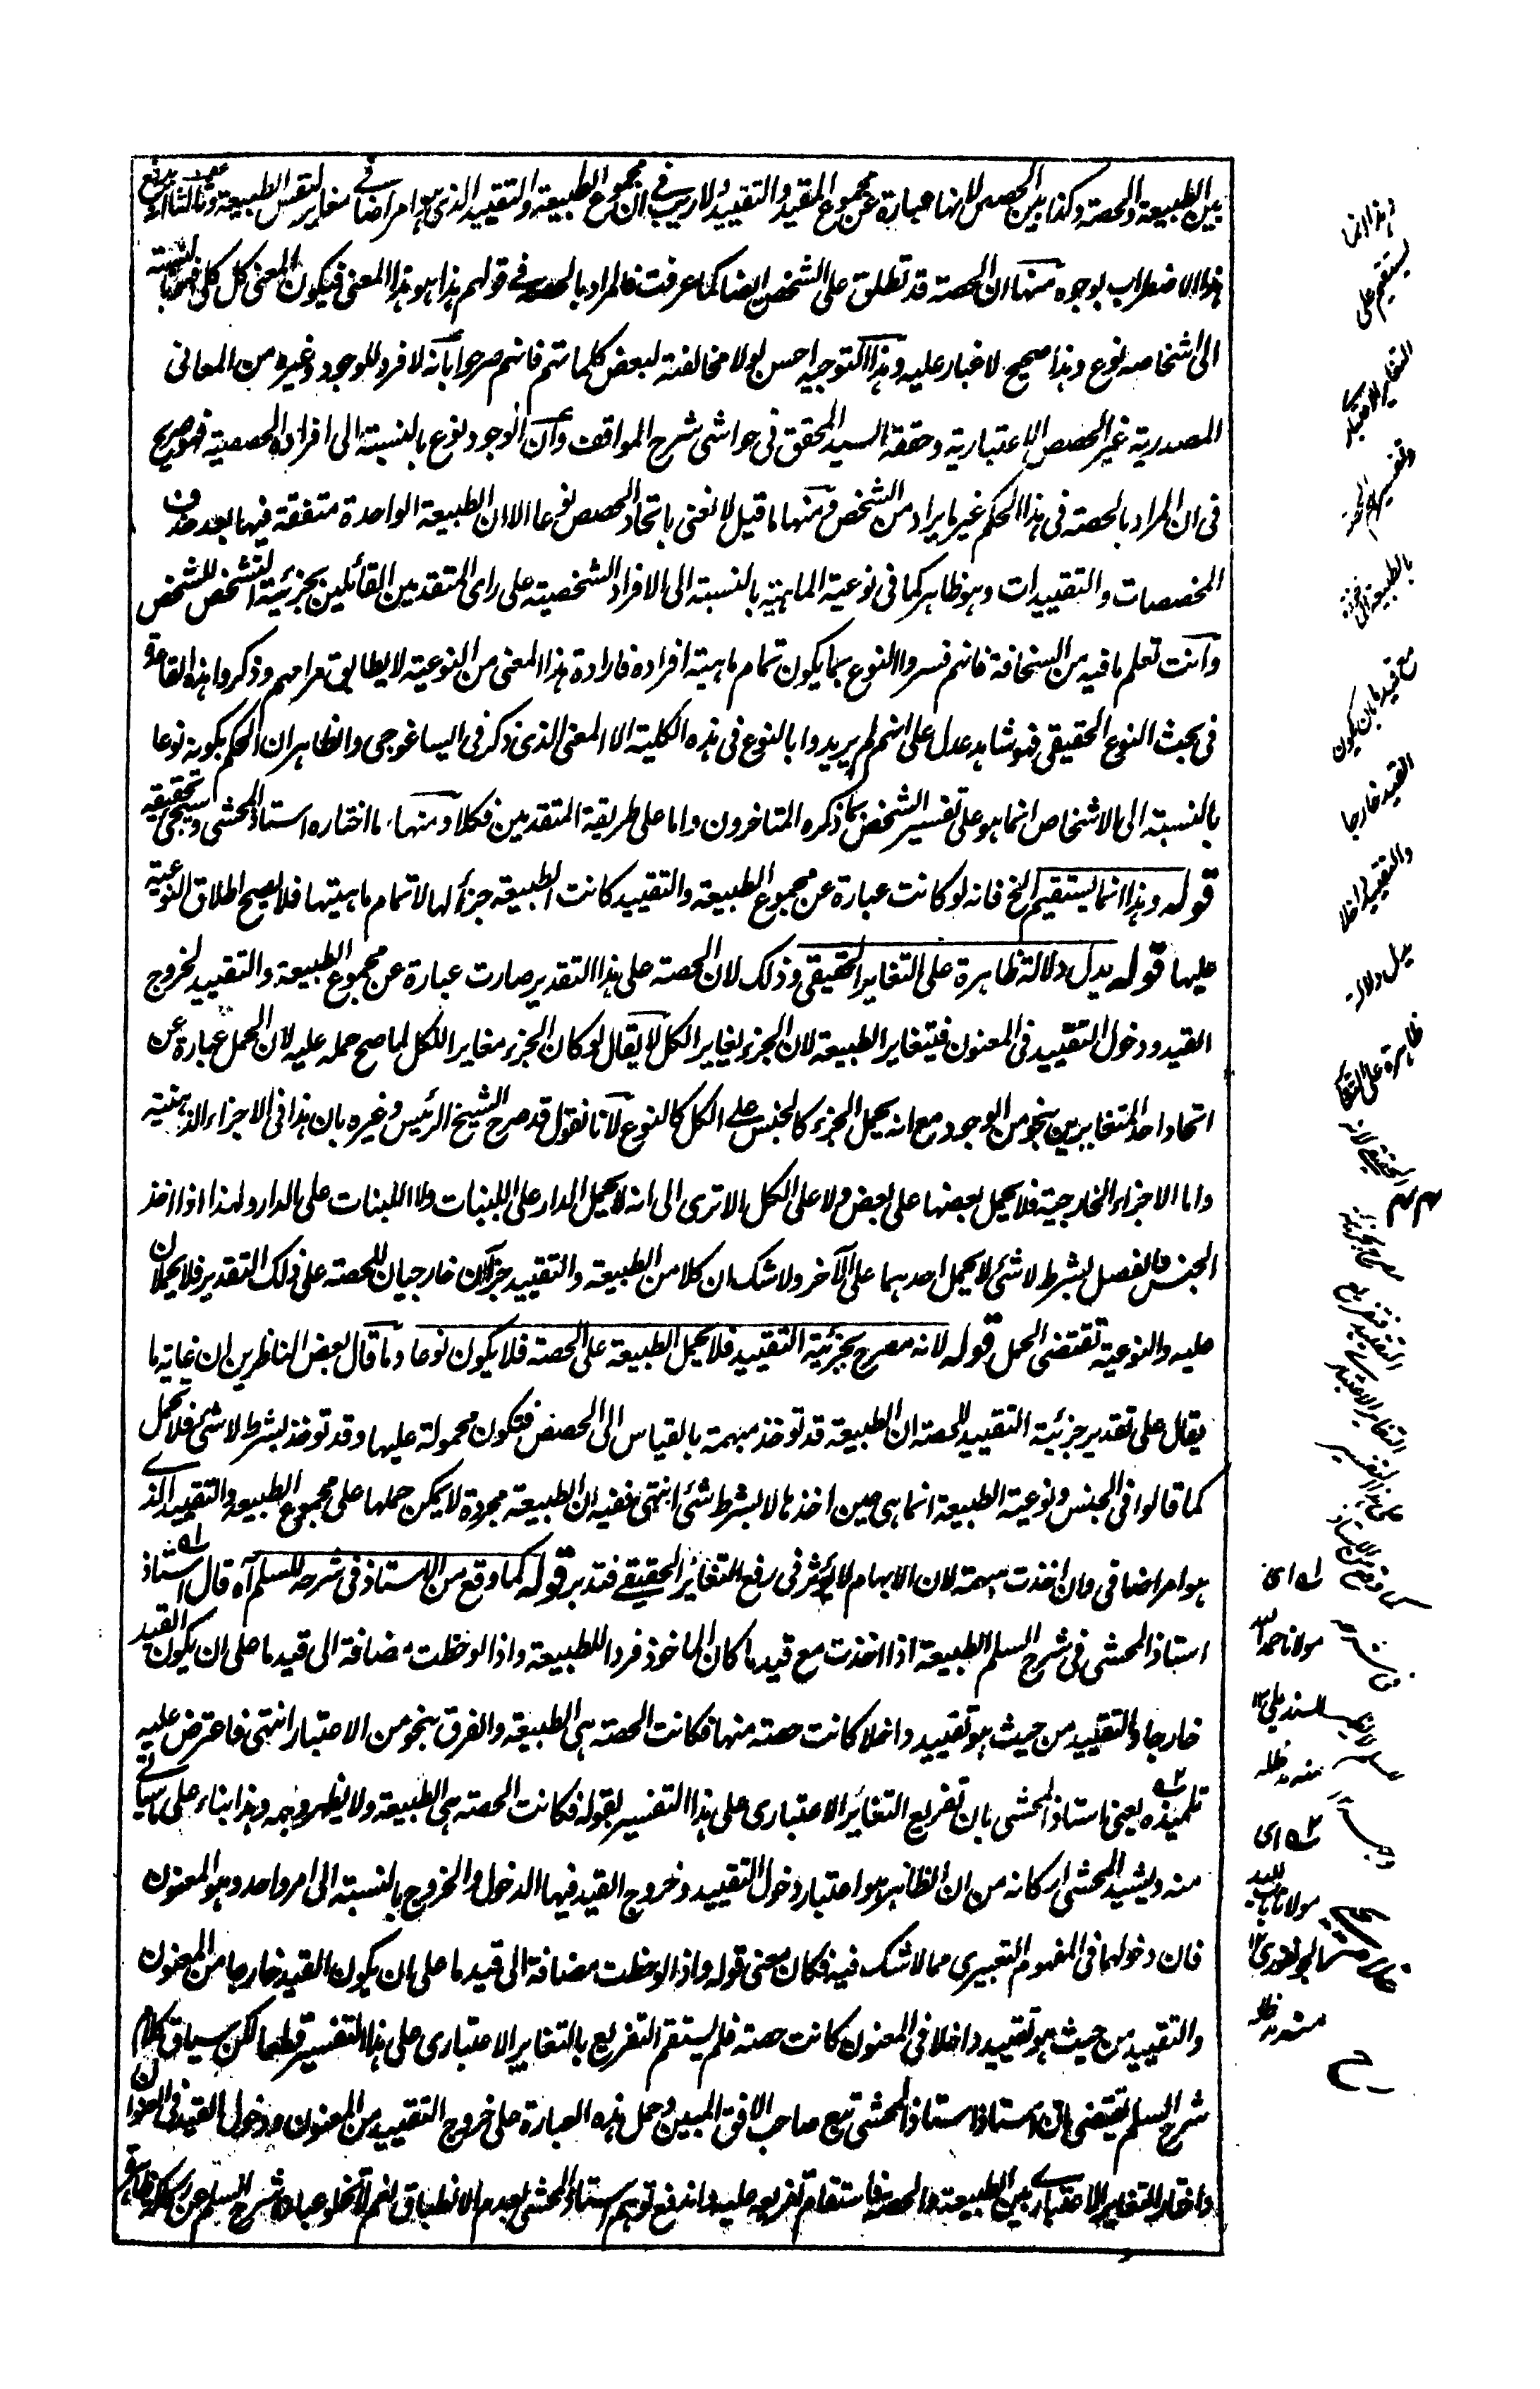 بين الطبيعة والحصة وكذا بين الحصص لانها عبارة عن مجموع المقيد والتقييد ولا ريب في ان مجموع الطبيعة والتقييد الذي هو امر اضافي مغاير لنفس الطبيعة
هذا الاضطراب بوجوه منها ان الحصة قد تطلق على الشخص ايضا كما عرفت فالمراد بالحصة في قولهم هذا هو هذا المعنى فيكون المعنى كل كلي بالنسبة
الى اشخاصه نوع وهذا صحيح لا غبار عليه وهذا التوجيه احسن لولا مخالفته لبعض كلماتهم فانهم صرحوا بانه لا فرد للوجود وغيره من المعاني
المصدرية غير الحصص الاعتبارية وحققه السيد المحقق في حواشي شرح المواقف وان الوجود نوع بالنسبة الى افراده الحصصية فهو صريح
في ان المراد بالحصة في هذا الحكم غير ما يراد من الشخص ومنها ما قيل لا نعني باتحاد الحصص نوعا الا ان الطبيعة الواحدة متفقة فيها بعد حذف
المخصصات والتقييدات وهو ظاهر كما في نوعية الماهية بالنسبة الى الافراد الشخصية على راى المتقدمين القائلين بجزئية التشخص للشخص
وانت تعلم ما فيه من السخافة فانهم فسروا النوع بما يكون تمام ماهية افراده فارادة هذا المعنى من النوعية لا يطابق مرامهم وذكروا هذه القاعدة
في بحث النوع الحقيقي فهو شاهد عدل على انهم لم يريدوا بالنوع في هذه الكلية الا المعنى الذي ذكر في ايساغوجي والظاهر ان الحكم بكونه نوعا
بالنسبة الى الاشخاص انما هو على تفسير الشخص بما ذكره المتاخرون واما على طريقة المتقدمين فكلا ومنها ما اختاره استاذ المحشي وسيجئ تحقيقه
قوله وهذا انما يستقيم الخ فانه لو كانت عبارة عن مجموع الطبيعة والتقييد كانت الطبيعة جزأ لها لا تمام ماهيتها فلا يصح اطلاق النوعية
عليها قوله يدل دلالة ظاهرة على التغاير الحقيقي وذلك لان الحصة على هذا التقدير صارت عبارة عن مجموع الطبيعة والتقييد لخروج
القيد ودخول التقييد في المعنون فيتغاير الطبيعة لان الجزء يغاير الكل لا يقال لو كان الجزء مغايرا للكل لما صح حمله عليه لان الحمل عبارة عن
اتحاد احد المتغايرين بنحو من الوجود مع انه يحمل الجزء كالجنس على الكل كالنوع لانا نقول قد صرح الشيخ الرئيس وغيره بان هذا في الاجزاء الذهنية
واما الاجزاء الخارجية فلا يحمل بعضها على بعض ولا على الكل الا ترى الى انه لا يحمل الدار على اللبنات ولا اللبنات على الدار ولهذا اذا اخذ
الجنس والفصل بشرط لا شئ لا يحمل احدهما على الآخر ولا شك ان كلا من الطبيعة والتقييد جزآن خارجيان للحصة على ذلك التقدير فلا يحملان
عليه والنوعية تقتضي الحمل قوله لانه مصرح بجزئية التقييد فلا يحمل الطبيعة على الحصة فلا يكون نوعا وما قال بعض الناظرين ان غاية ما
يقال على تقدير جزئية التقييد للحصة ان الطبيعة قد توخذ مبهمة بالقياس الى الحصص فتكون محمولة عليها وقد توخذ بشرط لا شئ فلا تحمل
كما قالوا في الجنس ونوعية الطبيعة انما هي حين اخذها لا بشرط شئ انتهى ففيه ان الطبيعة مجردة لا يمكن حملها على مجموع الطبيعة والتقييد الذي
هو امر اضافي وان اخذت مبهمة لان الابهام لا يؤثر في رفع التغاير الحقيقي فتدبر قوله كما وقع من الاستاذ في شرحه للسلم آه قال استاذ
استاذ المحشي في شرح السلم الطبيعة اذا اخذت مع قيد ما كان الماخوذ فردا للطبيعة واذا لوحظت مضافة الى قيد ما على ان يكون القيد
خارجا والتقييد من حيث هو تقييد داخلا كانت حصة منها فكانت الحصة هي الطبيعة والفرق بنحو من الاعتبار انتهى فاعترض عليه
تلميذه يعني استاذ المحشي بان تفريع التغاير الاعتباري على هذا التفسير بقوله فكانت الحصة هي الطبيعة ولا يظهر وجهه وهذا بناء على ما سياتي
منه ويشيد المحشي اركانه من ان الظاهر هو اعتبار دخول التقييد وخروج القيد فيها الدخول والخروج بالنسبة الى امر واحد وهو المعنون
فان دخولهما في المفهوم التعبيري مما لا شك فيه فكان معنى قوله واذا لوحظت مضافة الى قيد ما على ان يكون القيد خارجا من المعنون
والتقييد من حيث هو تقييد داخلا في المعنون كانت حصة فلم يستقم التفريع بالتغاير الاعتباري على هذا التفسير قطعا لكن سياق كلام
شرح السلم يقتضي بان استاذ استاذ المحشي تبع صاحب الافق المبين وحمل هذه العبارة على خروج التقييد من المعنون ودخول القيد في العنوان
واختار التغاير الاعتباري بين الطبيعة والحصة فاستقام تفريعه عليه واندفع توهم استاذ المحشي بعدم الانطباق نعم لا تخلو عبارة شرح السلم عن
وهذا انما
يستقيم على
التغاير الاعتباري
بالطبيعة
مع قيد ما بان يكون
القيد خارجا
والتقييد داخلا
يدل دلالة
ظاهرة على التغاير
الحقيقي لانه
مصرح بجزئية
التقييد
التغاير الاعتباري
على هذا التفسير
كما وقع من الاستاذ
في شرحه
للسلم
اى
مولانا حمد الله
السنديلي
منه مد ظله
اى
مولانا
منه مد ظله